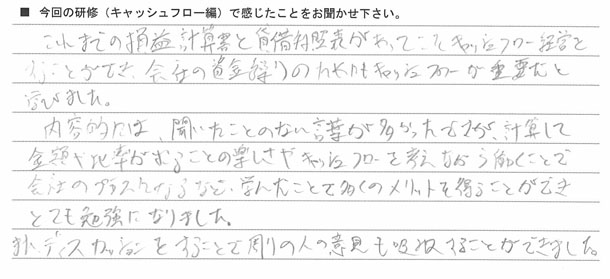 ■ 今回の研修（キャッシュフロー編）で感じたことをお聞かせ下さい。
これまでの損益計算書と貸借対照表があってこそキャッシュフロー経営と
することができ、会社の資金繰りのためにもキャッシュフローが重要だと
学びました。
内容的には、聞いたことのない言葉が多かったですが、計算して
金額や比率がでることの楽しさやキャッシュフローを考えながら働くことで
会社のプラスになるなど、学んだことで多くのメリットを得ることができ
とても勉強になりました。
また、ディスカッションをすることで周りの人の意見も吸収することができました。